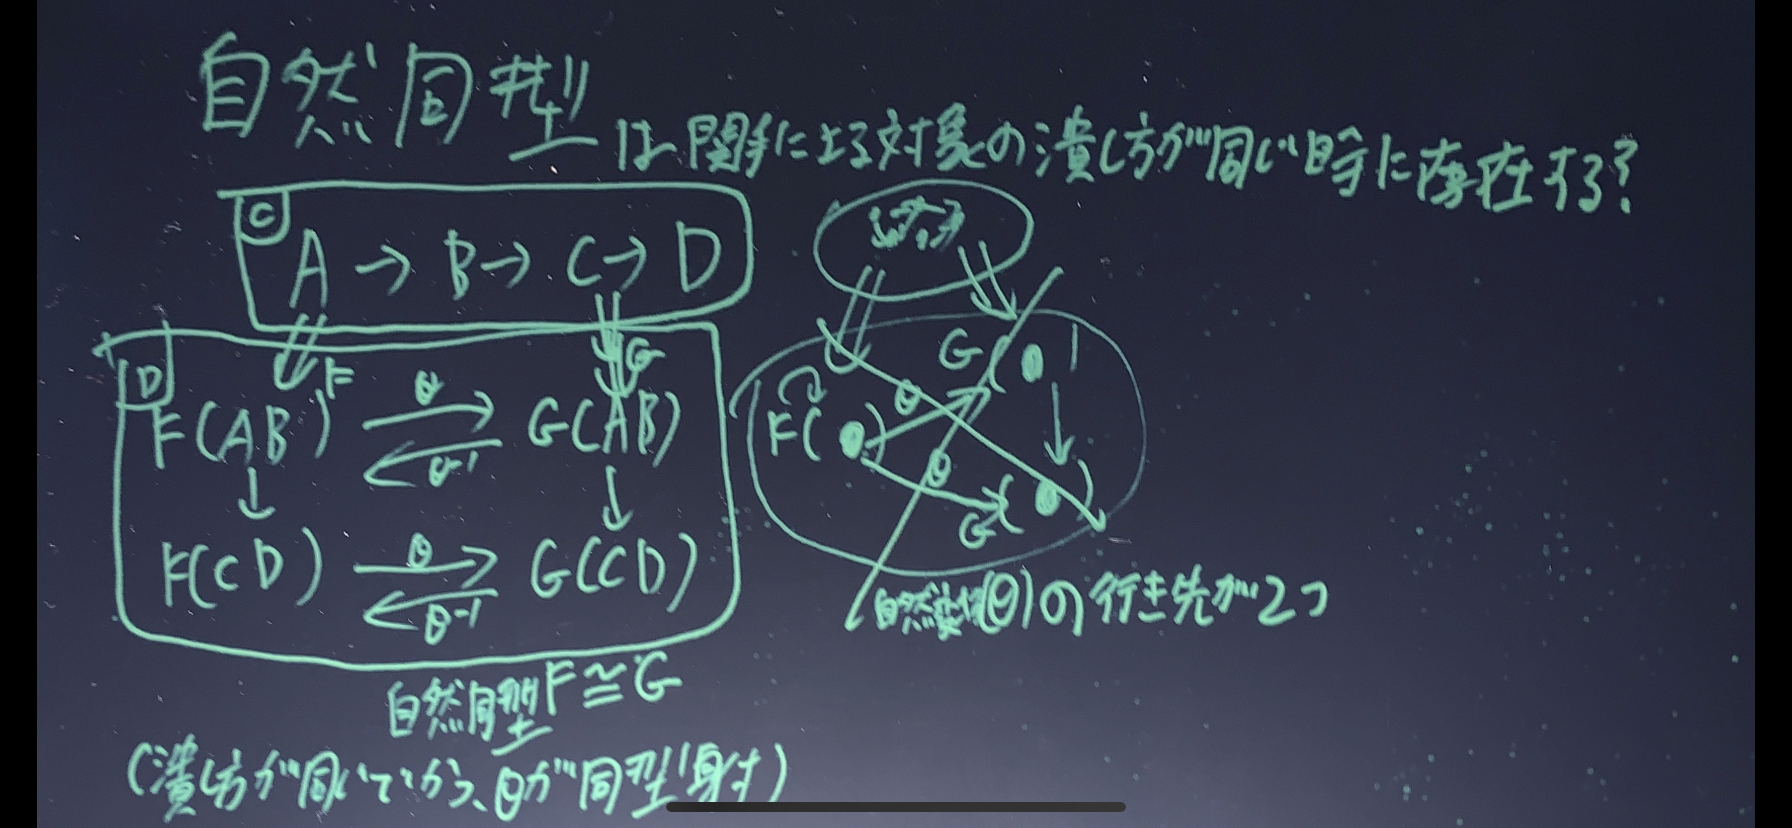 自然同型
は関手による対象の潰し方が同じ時に存在する?
C
A → B → C → D
D
F
G
F(AB) θ θ⁻¹ G(AB)
F(CD) θ θ⁻¹ G(CD)
自然同型 F≅G
(潰し方が同じだから、θが同型射)
G(
F( )
θ
θ
G( )
自然変換(θ)の行き先が2つ